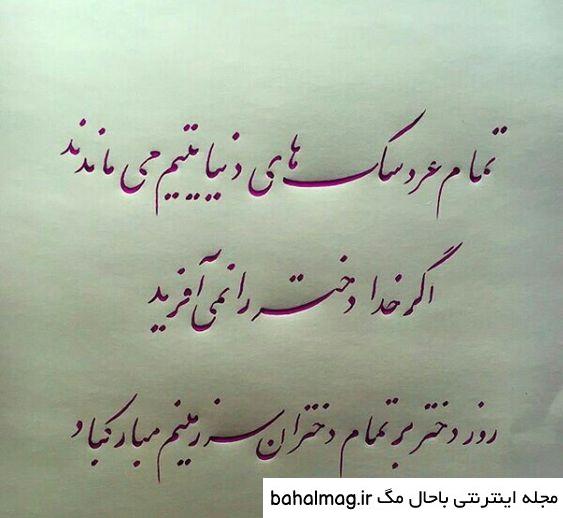 تمام عروسک های دنیا یتیم می ماندند
اگر خدا دختر را نمی آفرید
روز دختر بر تمام دختران سرزمینم مبارکباد
مجله اینترنتی باحال مگ bahalmag.ir